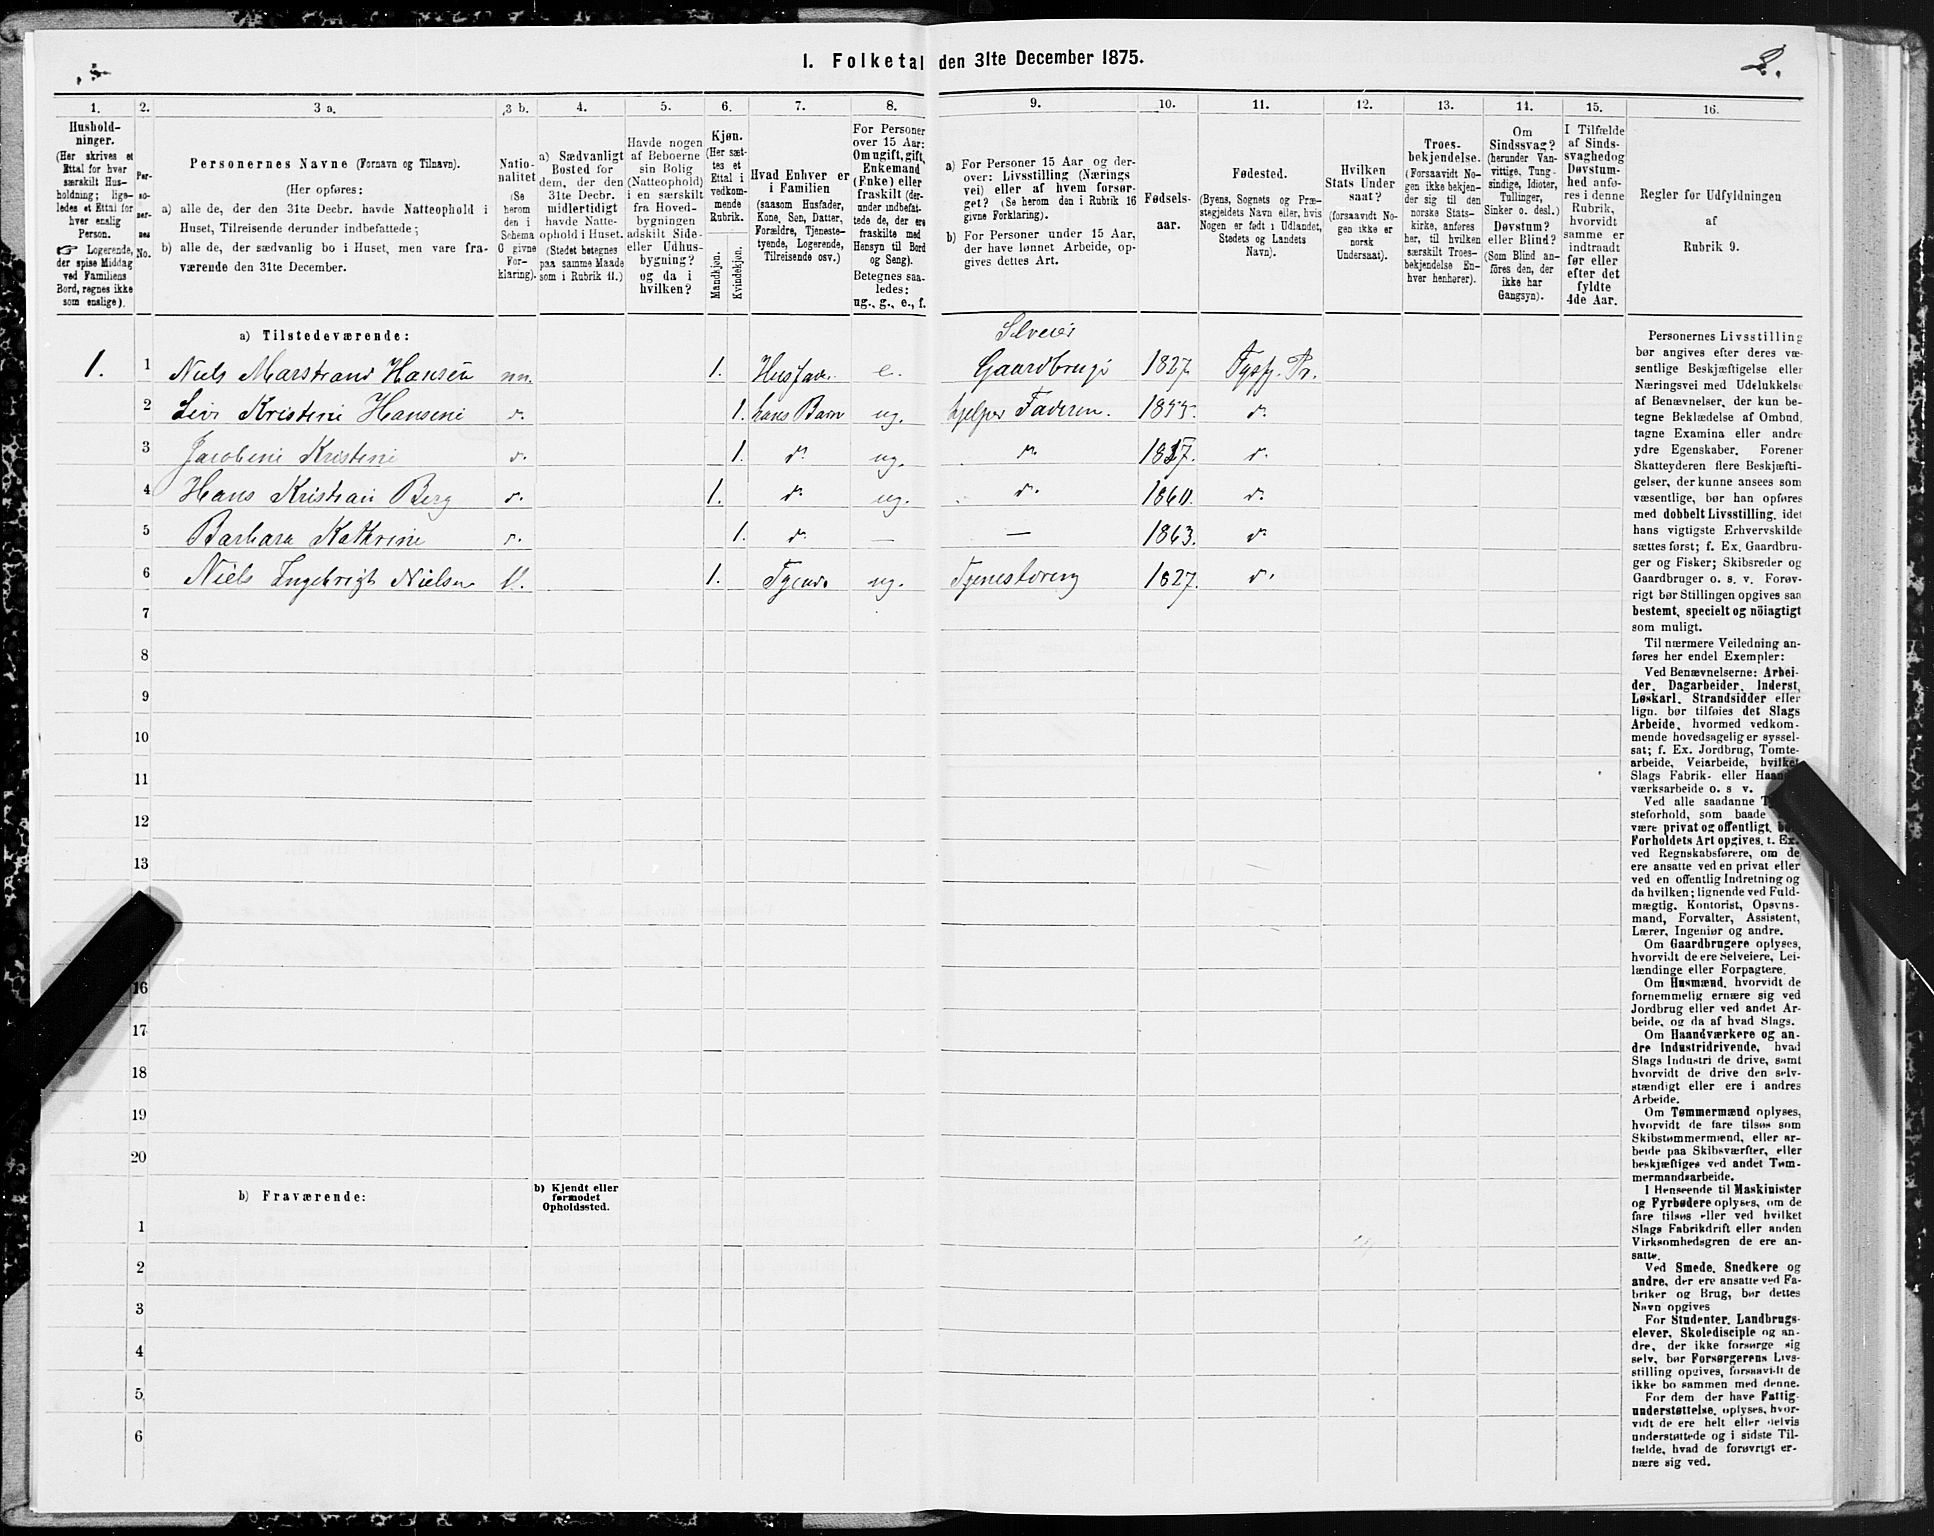 I. Folketal den 31te December 1875.
2.
1.
2.
3 a.
3 b.
4.
5.
6.
7.
8.
9.
10.
11.
12.
13.
14.
15.
16.
Hushold-
ninger.
(Her skrives et
Ettal for hver
særskilt Hus-
holdning; lige-
ledes et Ettal for
hver enslig
Person.
☞ Logerende,
der spise Middag
ved Familiens
Bord, regnes ikke
som enslige).
Per-
so-
ner-
nes
No.
Personernes Navne (Fornavn og Tilnavn).
(Her opføres:
a) alle de, der den 31te Decbr. havde Natteophold i
Huset, Tilreisende derunder indbefattede;
b) alle de, der sædvanlig bo i Huset, men vare fra-
værende den 31te December.
Natio-
nalitet
(Se
herom
den i
Schema
O givne
For-
klaring).
a) Sædvanligt
Bosted for
dem, der den
31te Decbr.
midlertidigt
havde Natte-
ophold i Huset.
(Stedet betegnes
paa samme Maade
som i Rubrik 11.)
Havde nogen
af Beboerne
sin Bolig
(Natteophold)
i en særskilt
fra Hoved-
bygningen
adskilt Side-
eller Udhus-
bygning?
og da i
hvilken?
Kjøn.
(Her sæt-
tes et
Ettal i
vedkom-
mende
Rubrik.
Mandkjøn.
Kvindekjøn.
Hvad Enhver er
i Familien
(saasom Husfader,
Kone, Søn, Datter,
Forældre, Tjeneste-
tyende, Logerende,
Tilreisende osv.)
For Personer
over 15 Aar:
Om ugift, gift,
Enkemand
(Enke) eller
fraskilt (der-
under indbefat-
tede de, der ere
fraskilte med
Hensyn til Bord
og Seng).
Betegnes saa-
ledes:
ug., g., e., f.
a) For Personer 15 Aar og der-
over: Livsstilling (Nærings
vei) eller af hvem forsør-
get? (Se herom den i Rubrik 16
givne Forklaring).
b) For Personer under 15 Aar,
der have lønnet Arbeide, op-
gives dettes Art.
Fødsels-
aar.
Fødested.
(Byens, Sognets og Præ-
stegjeldets Navn eller, hvis
Nogen er født i Udlandet,
Stedets og Landets
Navn).
Hvilken
Stats Under
saat?
(forsaavidt No-
gen ikke er
norsk
Undersaat).
Troes-
bekjendelse.
(Forsaavidt No-
gen ikke bekjen-
der sig til den
norske Stats-
kirke, anføres
her, til hvilken
særskilt Troes-
bekjendelse En-
hver henhører).
Om
Sindssvag?
(herunder Van-
vittige, Tung-
sindige, Idioter,
Tullinger,
Sinker o. desl.)
Døvstum?
eller Blind?
(Som Blind an-
føres den, der
ikke har
Gangsyn).
I Tilfælde
af Sinds-
svaghed og
Døvstum-
hed anfø-
res i denne
Rubrik,
hvorvidt
samme er
indtraadt
før eller
efter det
fyldte
4de Aar.
Regler for Udfyldningen
af
Rubrik 9.
a) Tilstedeværende:
Selveier
1. 1 Niels Marstrand Hansen nn. 1. Husfader e. Gaardbruger 1827. Tysfj. Pr.
2 Kristine Hansen d. 1. hans Barn ug. hjelper Faderen. d.
3 Jacobine Kristine d. 1. d. ug. d. d.
4 Hans Kristian Berg d. 1. d. ug. d. 1860. d.
5 Barbara Kathrine d. 1. d. — — 1863. d.
6 Niels Ingebrigt Nielsen 1. ug. 1827. d.
7
8
9
10
11
12
13
16
17
18
19
20
b) Fraværende:
b) Kjendt eller
formodet
Opholdssted.
1
2
3
4
5
6
Personernes Livsstilling
bør angives efter deres væ-
sentlige Beskjæftigelse eller
Næringsvei med Udelukkelse
af Benævnelser, der kun be-
tegne Beklædelse af Ombud,
tagne Examina eller andre
ydre Egenskaber. Forener
Skatteyderen flere Beskjæfti-
gelser, der kunne ansees som
væsentlige, bør han opføres
med dobbelt Livsstilling, idet
hans vigtigste Erhvervskilde
sættes først; f. Ex. Gaardbru-
ger og Fisker; Skibsreder og
Gaardbruger o. s. v. Forøv-
rigt bør Stillingen opgives saa
bestemt, specielt og nöiagtigt
som muligt.
Til nærmere Veiledning an-
føres her endel Exempler:
Ved Benævnelserne: Arbei-
der, Dagarbeider, Inderst,
Løskarl, Strandsidder eller
lign. bør tilføies det Slags
Arbeide, hvormed vedkom-
mende hovedsagelig er syssel-
sat; f. Ex. Jordbrug, Tomte-
arbeide, Veiarbeide, hvilket
Slags Fabrik- eller Haand-
værksarbeide o. s v.
Ved alle saadanne
steforhold, som baade
være privat og offentligt,
Forholdets Art opgives, t. Ex.
ved Regnskabsførere, om de
ere ansatte ved en privat eller
ved en offentlig Indretning og
da hvilken; lignende ved Fuld-
mægtig, Kontorist, Opsyns-
mand, Forvalter, Assistent,
Lærer, Ingeniør og andre.
Om Gaardbrugere oplyses,
hvorvidt de ere Selveiere, Lei-
lændinge eller Forpagtere.
Om Husmænd, hvorvidt de
fornemmelig ernære sig ved
Jordbrug eller ved andet Ar-
beide, og da af hvad Slags.
Om Haandværkere og an-
dre Industridrivende, hvad
Slags Industri de drive, samt
hvorvidt de drive den selv-
stændigt eller ere i andres
Arbeide.
Om Tømmermænd oplyses,
hvorvidt de fare tilsøs som
Skibstømmermænd, eller ar-
beide paa Skibsværfter, eller
beskjæftiges ved andet Tøm-
mermandsarbeide.
I Henseende til Maskinister
og Fyrbødere oplyses, om de
fare tilsøs eller ved hvilket
Slags Fabrikdrift eller anden
Virksomhedsgren de ere an-
satte.
Ved Smede, Snedkere og
andre, der ere ansatte ved Fa-
briker og Brug, bør dettes
Navn opgives
For Studenter, Landbrugs-
elever, Skoledisciple og an-
dre, der ikke forsørge sig
selv, bør Forsørgerens Livs-
stilling opgives, forsaavidt de
ikke bo sammen med denne.
For dem der have Fattig-
understøttelse, oplyses, hvor-
vidt de ere helt eller delvis
understøttede og i sidste Til-
fælde, hvad de forøvrigt er-
nære sig ved.